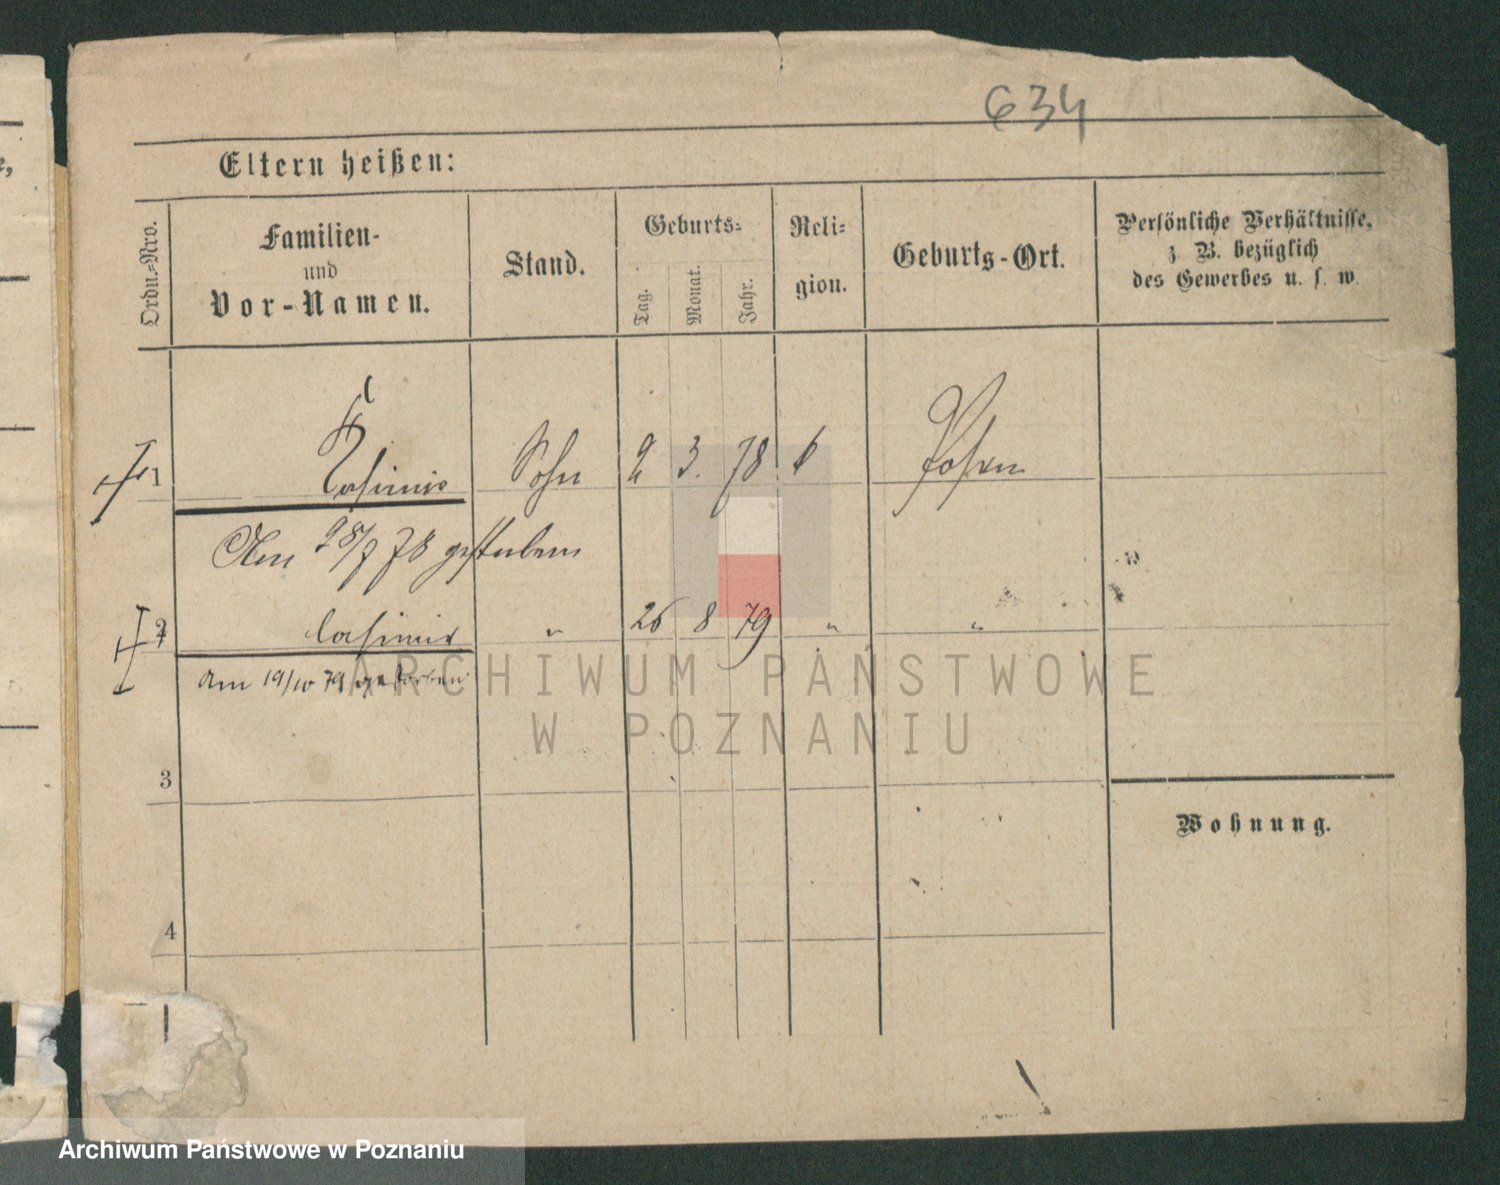 634
Eltern heißen:
Ordn.-Nro.
Familien-
und
Vor-Namen.
Stand.
Geburts-
Tag.
Monat.
Jahr.
Reli-
gion.
Geburts-Ort.
Persönliche Verhältnisse,
z. B. bezüglich
des Gewerbes u. s. w.
1 Casimir Sohn 2 3. 78 Posen
Am 28/7 78 gestorben
2 Casimir " 26 8 79 " "
Am 19/10 79 gestorben
3
Wohnung.
4
ARCHIWUM PAŃSTWOWE
W POZNANIU
Archiwum Państwowe w Poznaniu